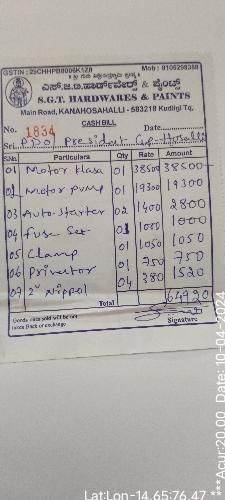 GSTIN : 29CHHPB8006K1Z8 Mob : 9106298388
|| ಶ್ರೀ ಗುರು ಬಸವೇಶ್ವರ ಪ್ರಸನ್ನ ||
ಎಸ್.ಜಿ.ಟಿ.ಹಾರ್ಡ್‌ವೇರ್ಸ್ & ಪೈಂಟ್ಸ್
S.G.T. HARDWARES & PAINTS
Main Road, KANAHOSAHALLI - 583218 Kudligi Tq,
CASH BILL
No. 1834 Date
Sri. PDO President G.P-Hosalli
SNo. Particulars Qty Rate Amount
01 Motor Hasa 01 38500 38500
02 Motor pump 01 19300 19300
03 Auto-Starter 02 1400 2800
04 fuse Set 01 1000 1000
05 Clamp 01 1050 1050
06 01 750 750
07 2" Nippol 04 380 1520
Total 64920
Goods once sold will not be
taken Back or exchange
Signature
Lat:Lon-14.65:76.47
***Acur:20.00 Date: 10-04-2024